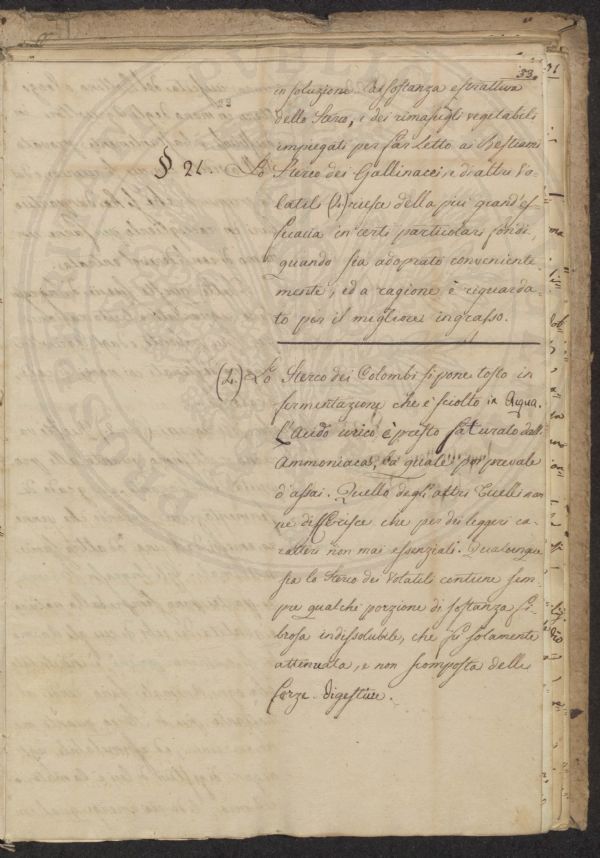 33. 31
in soluzione la sostanza estrattiva
dello Sterco, e dei rimasugli vegetabili
impiegati per far letto ai Bestiami
§ 21. Lo Sterco dei Gallinacei, e di altri Vo-
latili (1) riesce della più grand'ef-
ficacia in certi particolari fondi
quando sia adoprato conveniente
mente, ed a ragione è riguarda-
to per il migliore ingrasso.
(1.) Lo Sterco dei Colombi si pone tosto in
fermentazione che è sciolto in Acqua.
L'Acido urico è presto saturato dall
Ammoniaca, la quale poi prevale
d'assai. Quello degli altri Uccelli non
ne differisce che per dei leggeri ca-
ratteri non mai essenziali. Qualunque
sia lo Sterco dei Volatili contiene sem-
pre qualche porzione di sostanza fi-
brosa indissolubile, che fù solamente
attenuata, e non scomposta dalle
forze digestive.